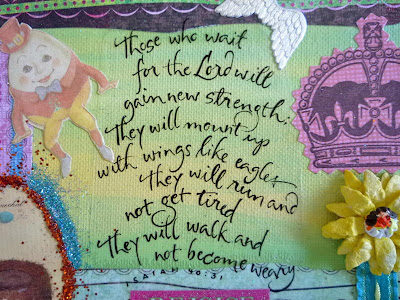 Those who wait
for the Lord will
gain new strength;
They will mount up
with wings like eagles
They will run and
not get tired
They will walk and
not become weary
ISAIAH 40:31